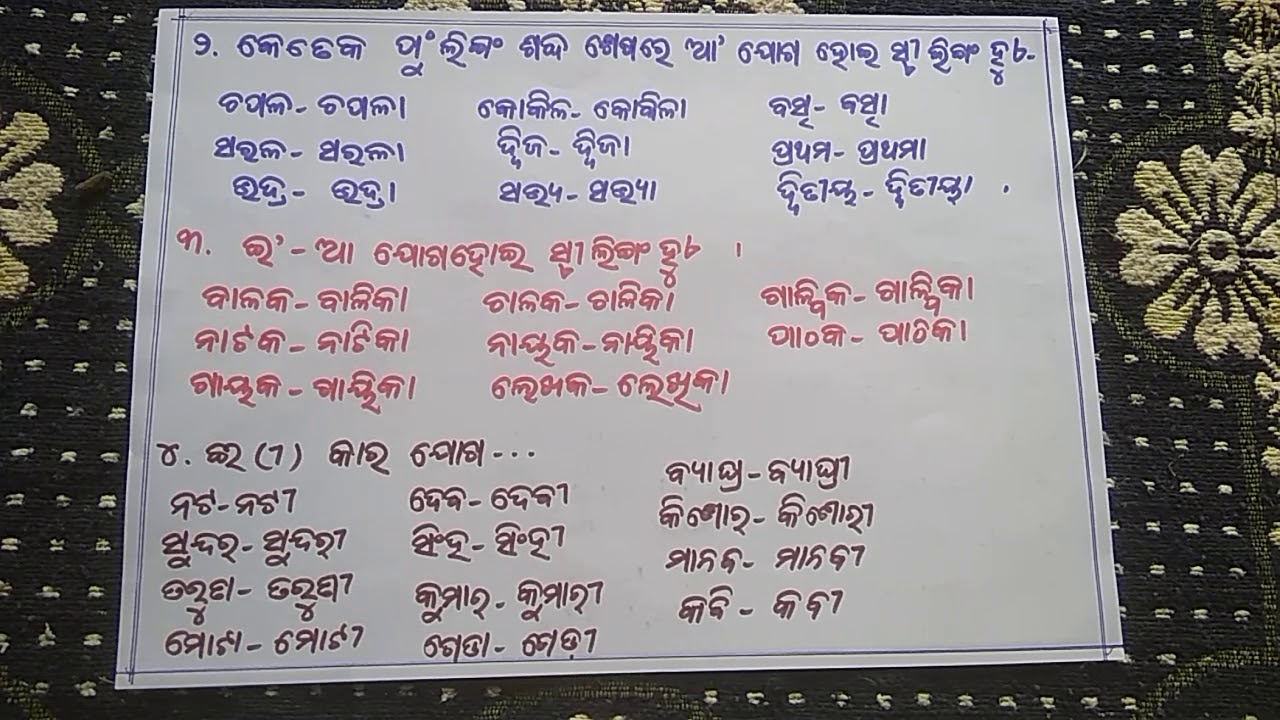 ୨. କେତେକ ପୁଂଲିଙ୍ଗ ଶବ୍ଦ ଶେଷରେ 'ଆ' ଯୋଗ ହୋଇ ସ୍ତ୍ରୀଲିଙ୍ଗ ହୁଏ-
ଚପଳ - ଚପଳା କୋକିଳ - କୋକିଳା ବତ୍ସ - ବତ୍ସା
ସରଳ - ସରଳା ଦ୍ୱିଜ - ଦ୍ୱିଜା ପ୍ରଥମ - ପ୍ରଥମା
ଭଦ୍ର - ଭଦ୍ରା ସଭ୍ୟ - ସଭ୍ୟା ଦ୍ୱିତୀୟ - ଦ୍ୱିତୀୟା .
୩. ଇ' - ଆ ଯୋଗହୋଇ ସ୍ତ୍ରୀଲିଙ୍ଗ ହୁଏ ।
ବାଳକ - ବାଳିକା ଚାଳକ - ଚାଳିକା ଗାଳ୍ପିକ - ଗାଳ୍ପିକା
ନାଟକ - ନାଟିକା ନାୟକ - ନାୟିକା ପାଠକ - ପାଠିକା
ଗାୟକ - ଗାୟିକା ଲେଖକ - ଲେଖିକା
୪. ଈ (ୀ) କାର ଯୋଗ ...
ନଟ - ନଟୀ ଦେବ - ଦେବୀ ବ୍ୟାଘ୍ର - ବ୍ୟାଘ୍ରୀ
ସୁନ୍ଦର - ସୁନ୍ଦରୀ ସିଂହ - ସିଂହୀ କିଶୋର - କିଶୋରୀ
ତରୁଣ - ତରୁଣୀ କୁମାର - କୁମାରୀ ମାନବ - ମାନବୀ
ମୋଟା - ମୋଟୀ ଗେଡା - ଗେଡ଼ୀ କବି - କବୀ